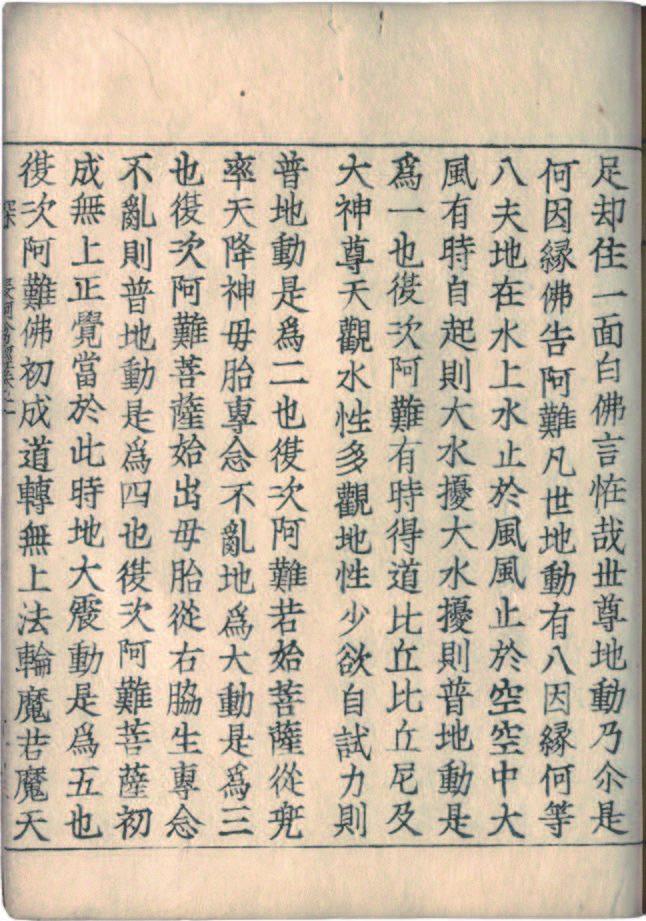 足却住一面白佛言恠哉丗尊地動乃尒是
何因縁佛告阿難凡世地動有八因縁何等
八夫地在水上水止於風風止於空空中大
風有時自起則大水擾大水擾則普地動是
爲一也復次阿難有時得道比丘比丘尼及
大神尊天觀水性多觀地性少欲自試力則
普地動是爲二也復次阿難若始菩薩從兠
率天降神毋胎專念不亂地爲大動是爲三
也復次阿難菩薩始出母胎從右脇生專念
不亂則普地動是爲四也復次阿難菩薩初
成無上正覺當於此時地大震動是爲五也
深
復次阿難佛初成道轉無上法輪魔若魔天